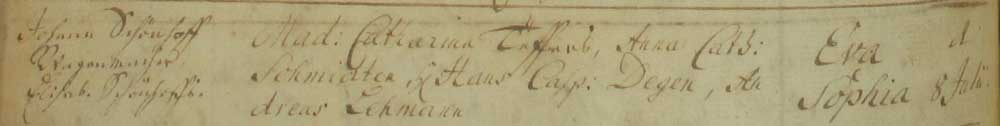 Johann Schönhoff
Wagenmacher
Elisab. Schönhoffs.
Mad: Catharina Tüffers, Anna Cath:
Schmidten, Hans Casp: Degen, An
dreas Lehmann
Eva
Sophia
d.
8 Julii.